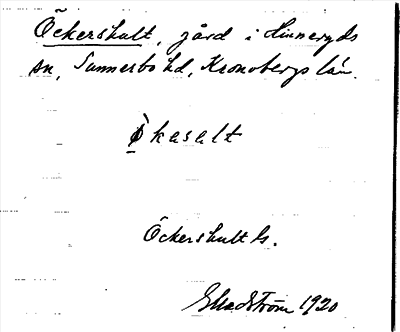 Öckershult, gård i Hinneryds
sn, Sunnerbo hd, Kronobergs län.
ø̀kasalt
Öckershult ls.
1920